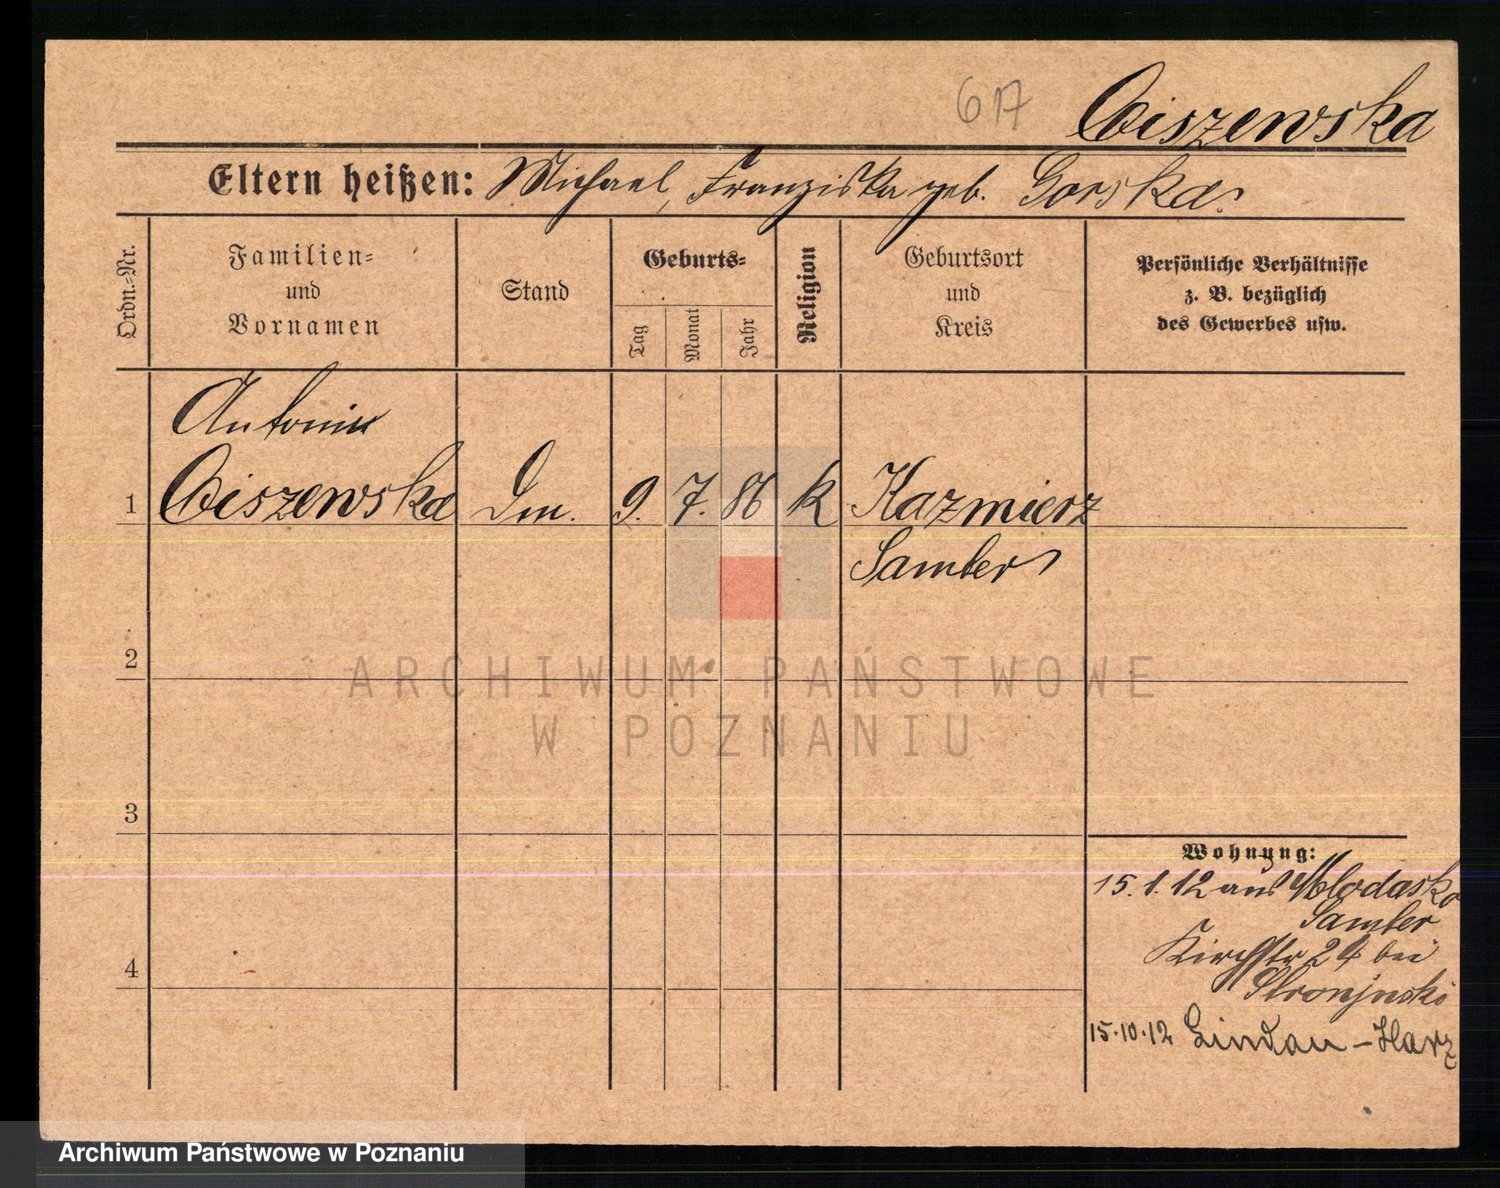 617 Ciszewska
Eltern heißen: Michael, Franziska geb. Gorska.
Ordn.-Nr.
Familien-
und
Vornamen
Stand
Geburts-
Tag
Monat
Jahr
Religion
Geburtsort
und
Kreis
Persönliche Verhältnisse
z. B. bezüglich
des Gewerbes usw.
Antonie
1 Ciszewska Dm. 9. 7. 86 k Kazmierz
Samter
2
3
4
ARCHIWUM PAŃSTWOWE
W POZNANIU
Wohnung:
15.1.12 aus Mlodasko
Samter
Kirchstr 24 bei
15.10.12 Lindau - Harz
Archiwum Państwowe w Poznaniu